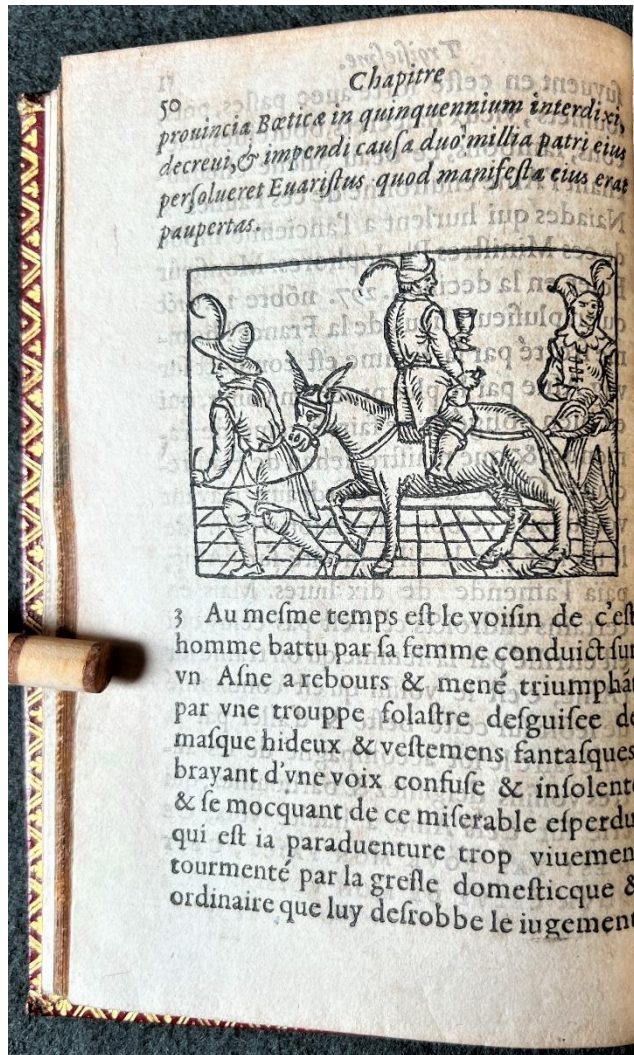 Chapitre
50
prouincia Bœticæ in quinquennium interdixi,
decreui, & impendi causa duo millia patri eius
persolueret Euaristus quod manifesta eius erat
paupertas.
3 Au mesme temps est le voisin de c'est
homme battu par sa femme conduict sur
vn Asne a rebours & mené triumphãt
par vne trouppe folastre desguisee de
masque hideux & vestemens fantasques
brayant d'vne voix confuse & insolente
& se mocquant de ce miserable esperdu
qui est ia paraduenture trop viuement
tourmenté par la gresle domesticque &
ordinaire que luy desrobbe le iugement